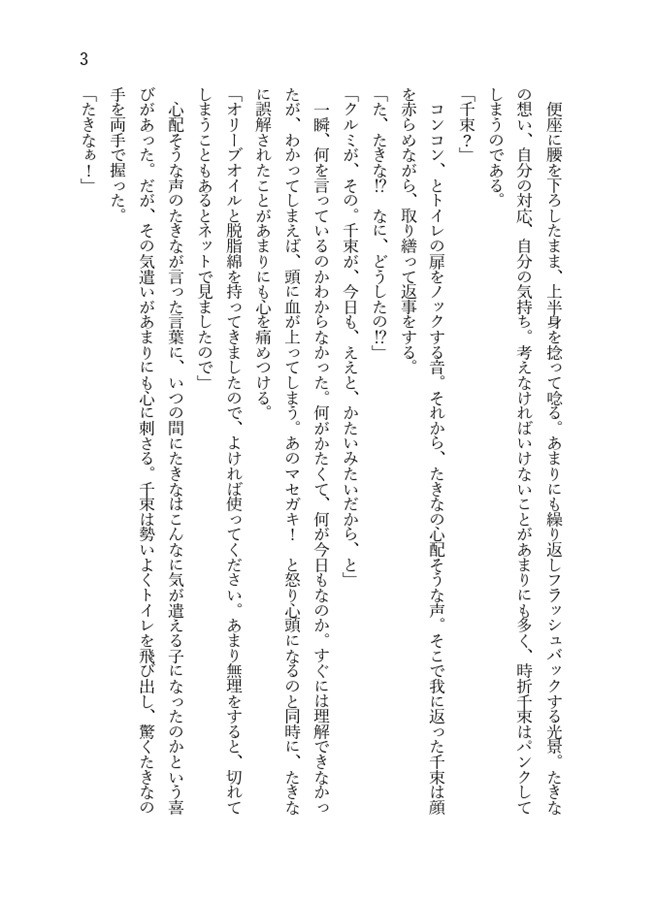 3
　便座に腰を下ろしたまま、上半身を捻って唸る。あまりにも繰り返しフラッシュバックする光景。たきな
の想い、自分の対応、自分の気持ち。考えなければいけないことがあまりにも多く、時折千束はパンクして
しまうのである。
「千束？」
　コンコン、とトイレの扉をノックする音。それから、たきなの心配そうな声。そこで我に返った千束は顔
を赤らめながら、取り繕って返事をする。
「た、たきな⁉　なに、どうしたの⁉」
「クルミが、その。千束が、今日も、ええと、かたいみたいだから、と」
　一瞬、何を言っているのかわからなかった。何がかたくて、何が今日もなのか。すぐには理解できなかっ
たが、わかってしまえば、頭に血が上ってしまう。あのマセガキ！　と怒り心頭になるのと同時に、たきな
に誤解されたことがあまりにも心を痛めつける。
「オリーブオイルと脱脂綿を持ってきましたので、よければ使ってください。あまり無理をすると、切れて
しまうこともあるとネットで見ましたので」
　心配そうな声のたきなが言った言葉に、いつの間にたきなはこんなに気が遣える子になったのかという喜
びがあった。だが、その気遣いがあまりにも心に刺さる。千束は勢いよくトイレを飛び出し、驚くたきなの
手を両手で握った。
「たきなぁ！」